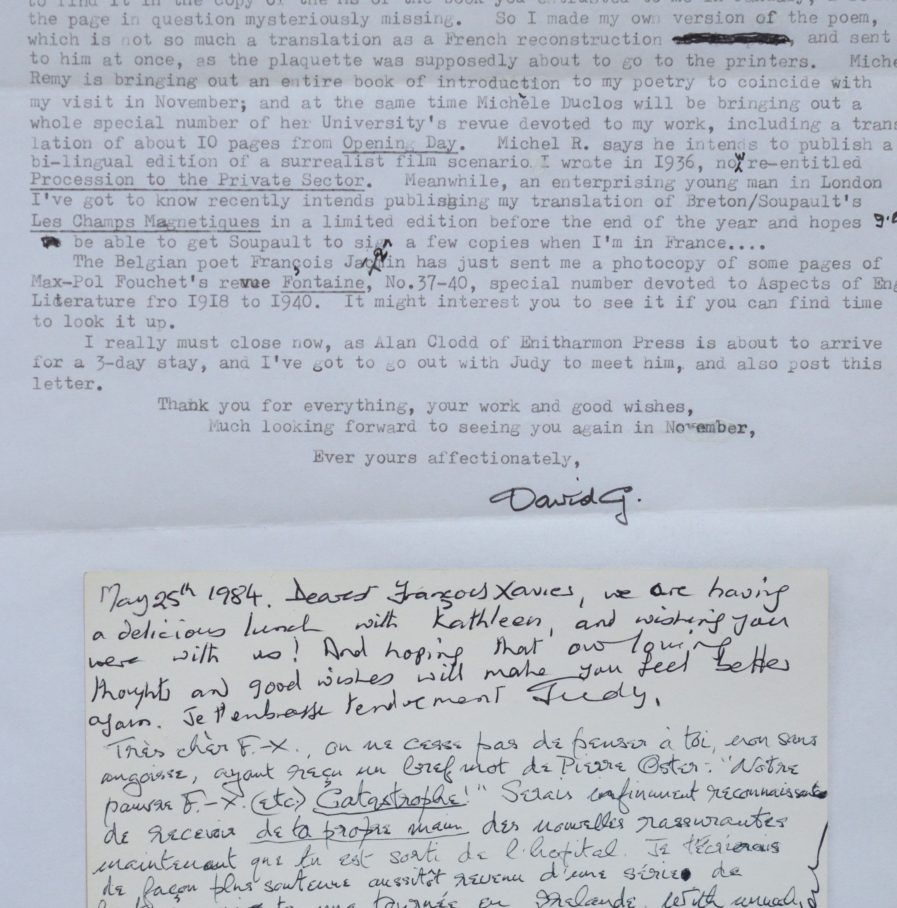 to find it in the copy of the MS of the book you entrusted to me in January, I
the page in question mysteriously missing.  So I made my own version of the poem,
which is not so much a translation as a French reconstruction , and sent
to him at once, as the plaquette was supposedly about to go to the printers.  Miche
Remy is bringing out an entire book of introduction to my poetry to coincide with
my visit in November; and at the same time Michèle Duclos will be bringing out a
whole special number of her University's revue devoted to my work, including a trans
lation of about IO pages from Opening Day.  Michel R. says he intends to publish a
bi-lingual edition of a surrealist film scenario I wrote in I936, now re-entitled
Procession to the Private Sector.  Meanwhile, an enterprising young man in London
I've got to know recently intends publishing my translation of Breton/Soupault's
Les Champs Magnetiques in a limited edition before the end of the year and hopes
be able to get Soupault to sign a few copies when I'm in France....
The Belgian poet François Jacqmin has just sent me a photocopy of some pages of
Max-Pol Fouchet's revue Fontaine, No.37-40, special number devoted to Aspects of Eng
Literature fro I9I8 to I940.  It might interest you to see it if you can find time
to look it up.
I really must close now, as Alan Clodd of Enitharmon Press is about to arrive
for a 3-day stay, and I've got to go out with Judy to meet him, and also post this
letter.
Thank you for everything, your work and good wishes,
Much looking forward to seeing you again in November,
Ever yours affectionately,
David G.
May 25th 1984. Dearest François Xavier, we are having
a delicious lunch with Kathleen, and wishing you
were with us! And hoping that our loving
thoughts and good wishes will make you feel better
again. Je t'embrasse tendrement Judy.
Très cher F.-X., on ne cesse pas de penser à toi, non sans
angoisse, ayant reçu un bref mot de Pierre Oster: "Notre
pauvre F.-X. (etc) Catastrophe!" Serais infiniment reconnaissant
de recevoir de ta propre main des nouvelles rassurantes
maintenant que tu est sorti de l'hopital. Je t'écrirais
de façon plus aussitôt revenu d'une série de
une tournée en Irelande. With